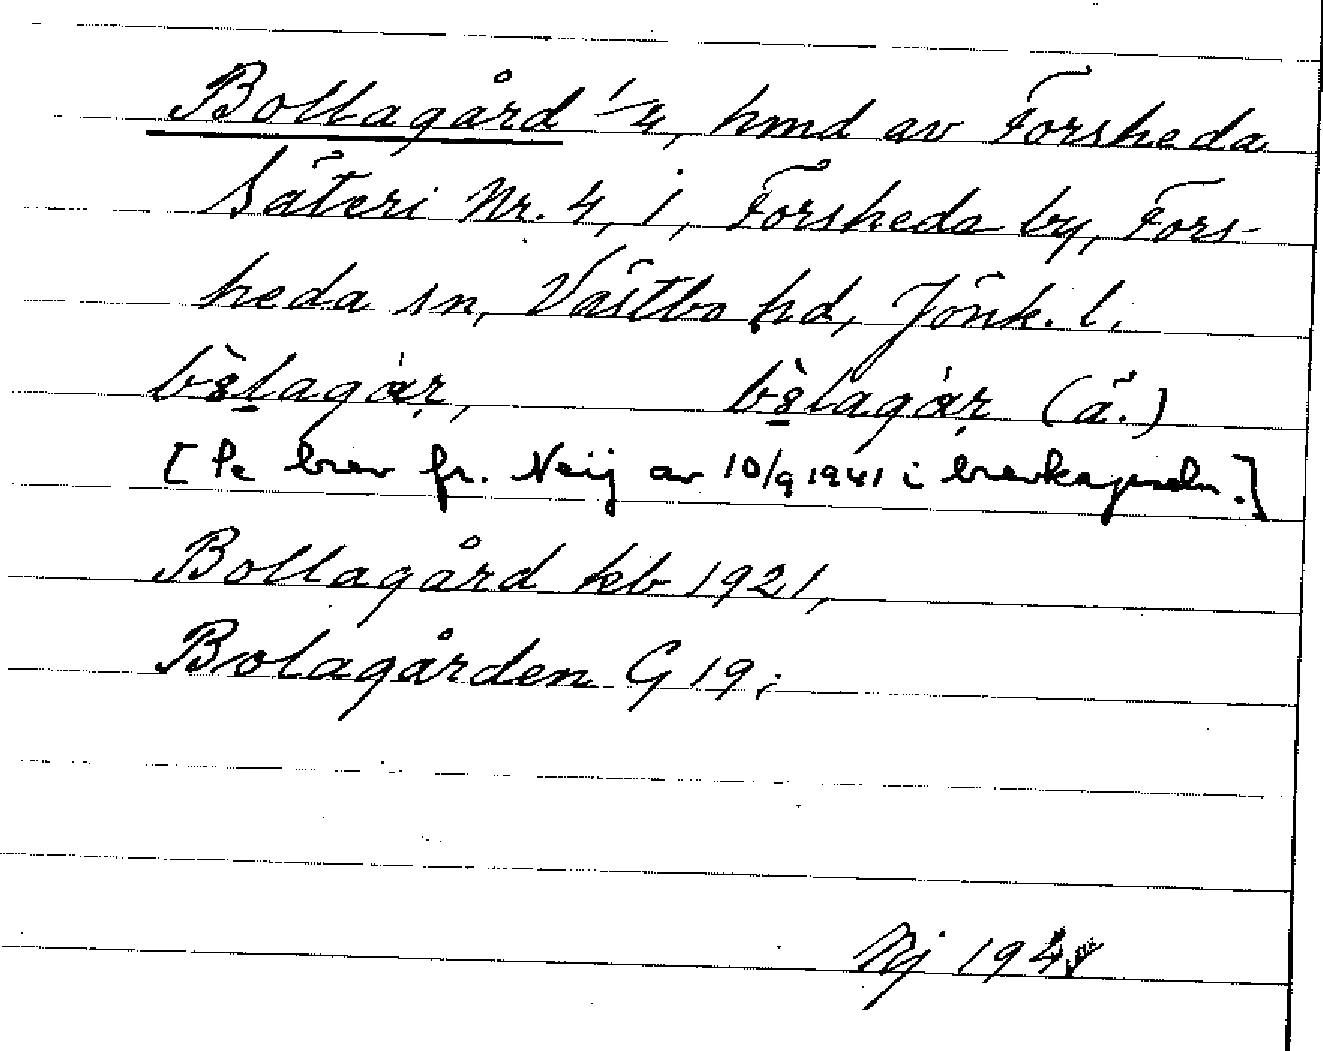 Bollagård 1/4, hmd av Forsheda
Säteri Nr. 4, i, Forsheda by, Fors-
heda sn, Västbo hd, Jönk. l.
(ä.)
[Se brev fr. Neij av 10/9 1941 i brevkapseln.]
Bollagård kb 1921,
Bolagården G 19;
Nj